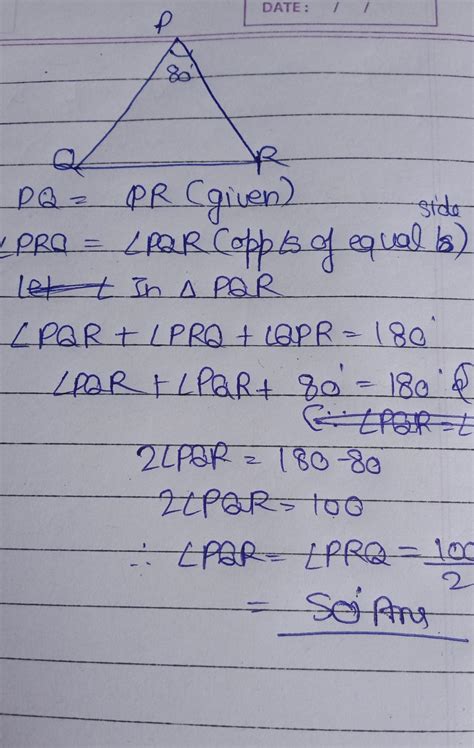 DATE: / /
P
80°
Q R
PQ = PR (given)
side
∠PRQ = ∠PQR (opp ∠s of equal ∠s)
let ∠ In △ PQR
∠PQR + ∠PRQ + ∠QPR = 180°
∠PQR + ∠PQR + 80° = 180°
(∵ ∠PQR = ∠
2∠PQR = 180-80
2∠PQR = 100
∴ ∠PQR = ∠PRQ = 100
2
= 50° Ans